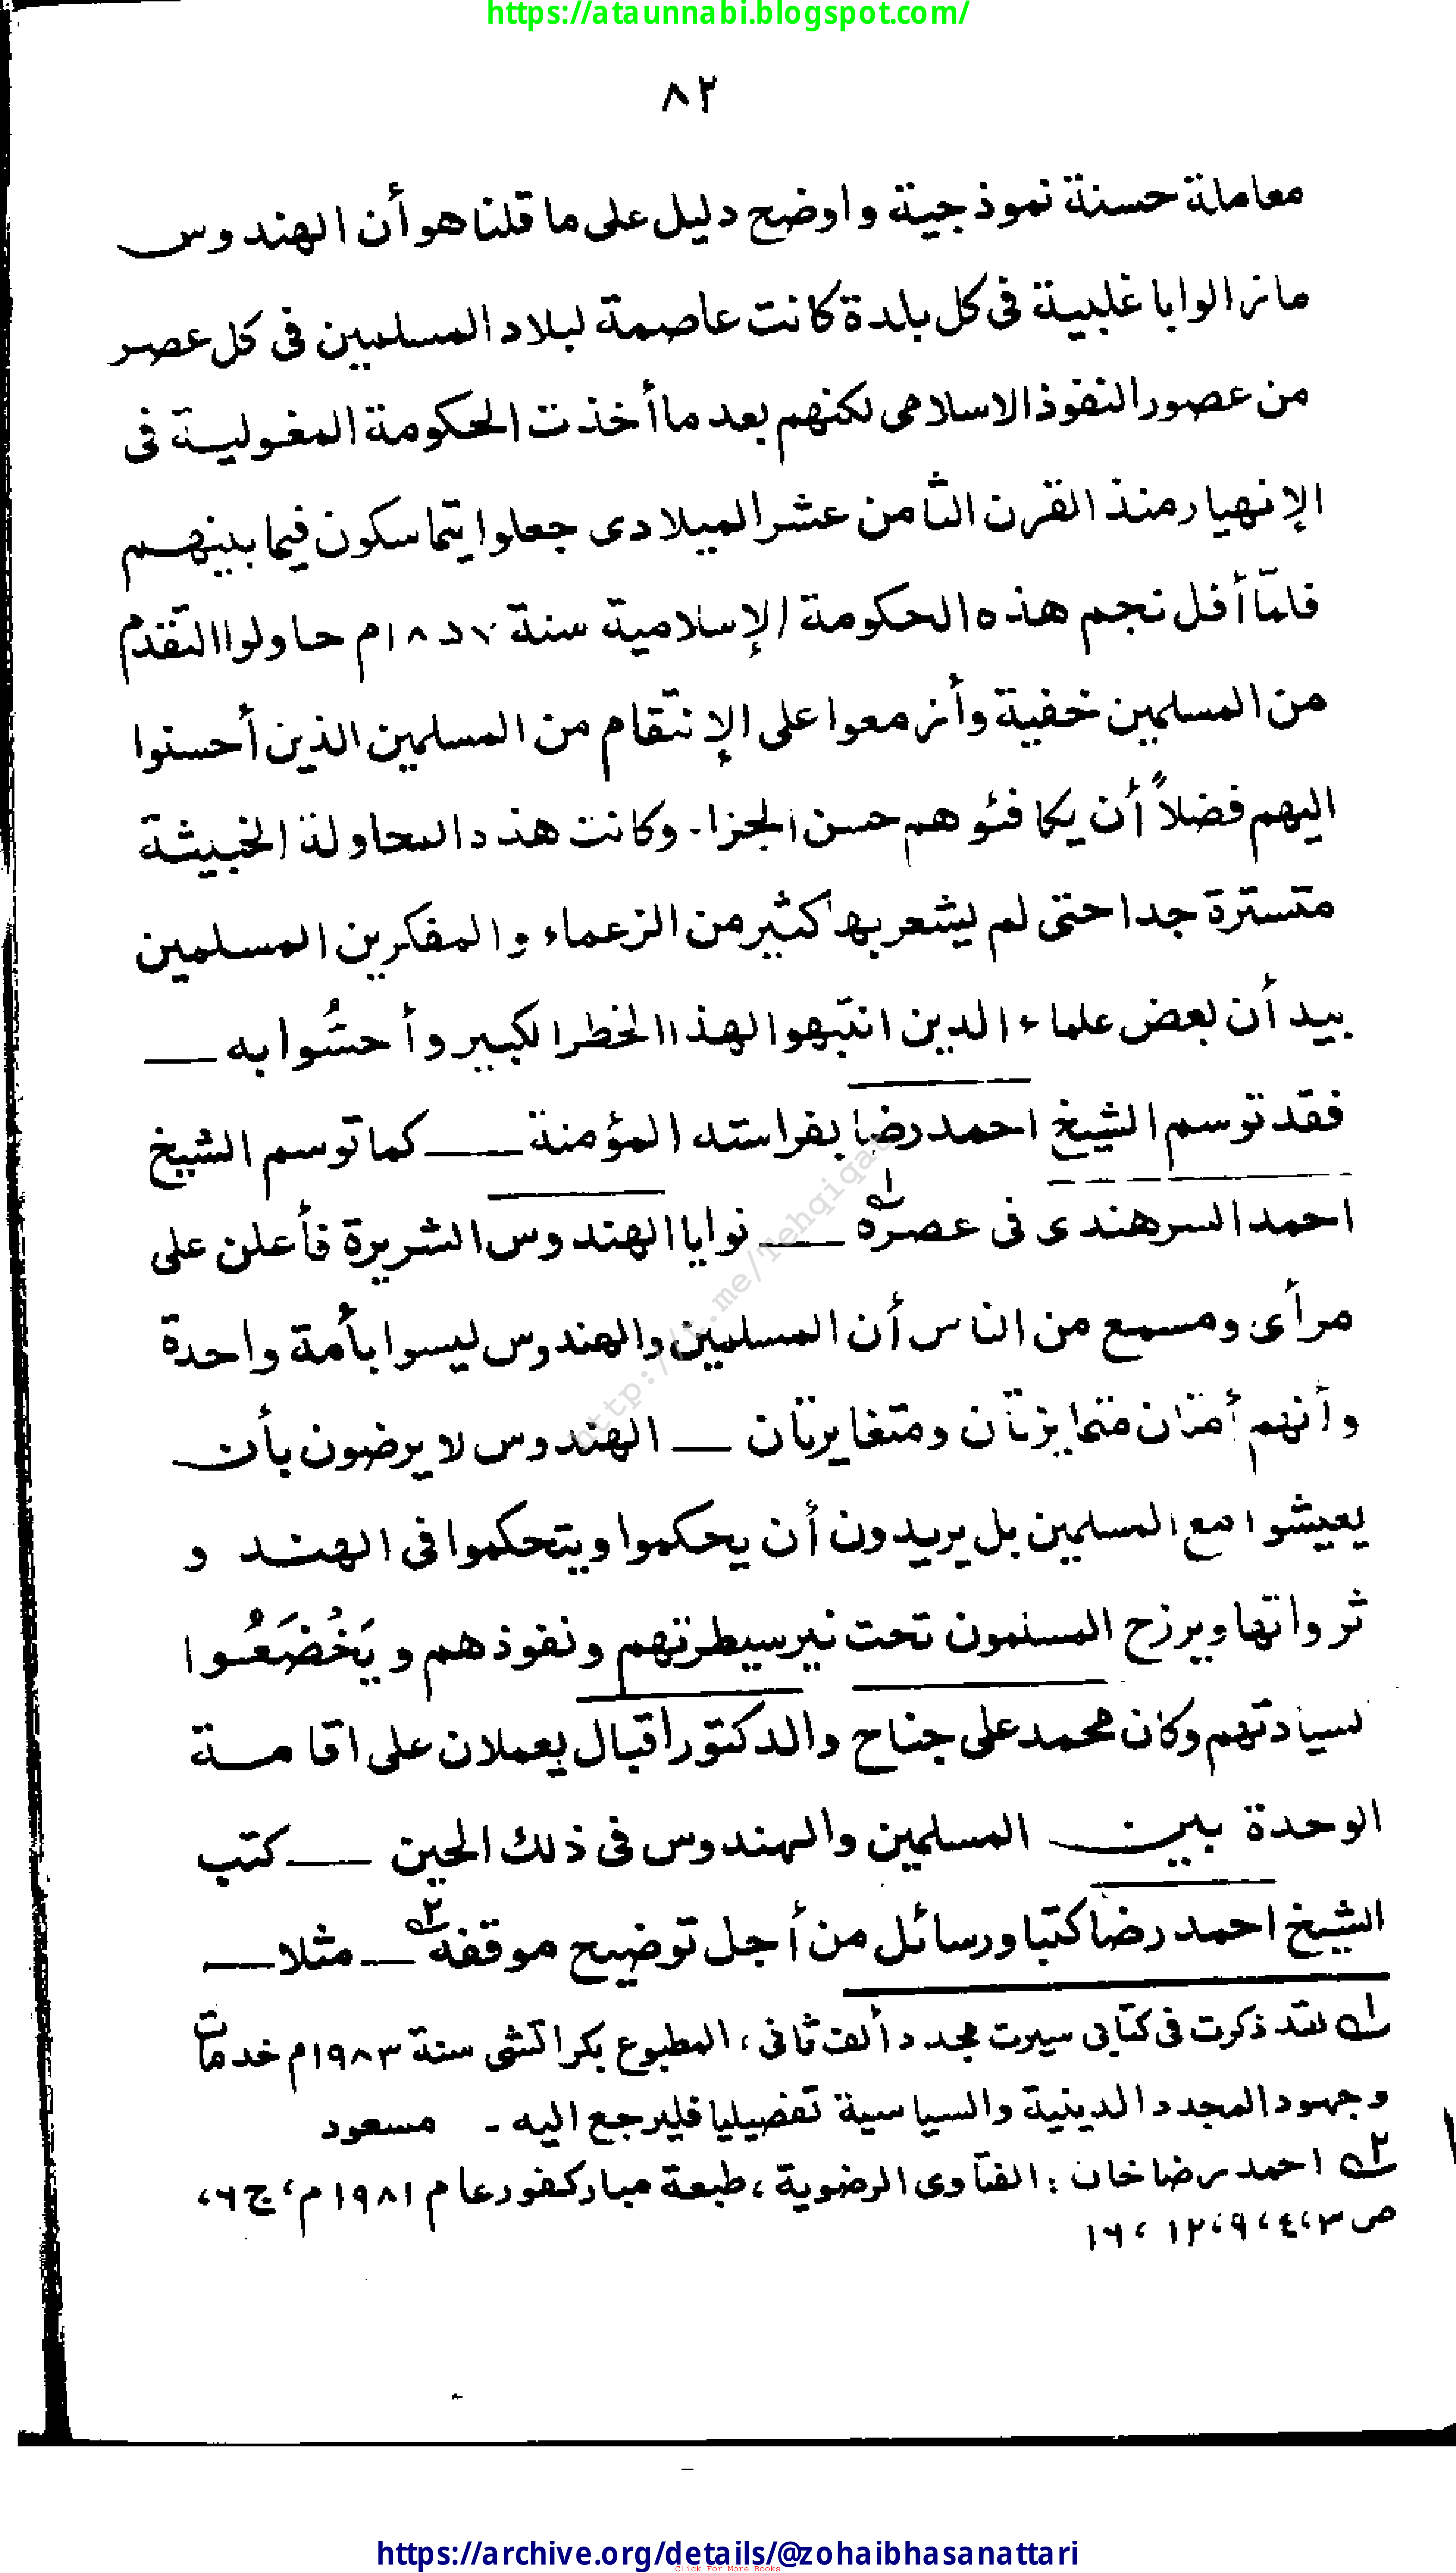 https://ataunnabi.blogspot.com/
٨٢
معاملة حسنة نموذجية واوضح دليل على ما قلنا هو أن الهندوس
مازالوا باغلبية فى كل بلدة كانت عاصمة لبلاد المسلمين فى كل عصر
من عصور النفوذ الاسلامى لكنهم بعد ما أخذت الحكومة المغولية فى
الإنهيار منذ القرن الثامن عشر الميلادى جعلوا يتماسكون فيما بينهم
فلمّا أفل نجم هذه الحكومة الإسلامية سنة ١٨٥٧م حاولوا التقدم
من المسلمين خفية وأزمعوا على الإنتقام من المسلمين الذين أحسنوا
اليهم فضلاً أن يكافئوهم حسن الجزا۔ وكانت هذه المحاولة الخبيثة
متسترة جدا حتى لم يشعر بها كثير من الزعماء والمفكرين المسلمين
بيد أن بعض علماء الدين انتبهوا لهذا الخطر الكبير وأحسُّوا به ــــ
فقد توسم الشيخ احمد رضا بفراسته المؤمنة ــــ كما توسم الشيخ
احمد السرهندى فى عصره ١؎ ــــ نوايا الهندوس الشريرة فأعلن على
مرأى ومسمع من الناس أن المسلمين والهندوس ليسوا بأمة واحدة
وأنهم أمتان متمايزتان ومتغايرتان ــــ الهندوس لا يرضون بأن
يعيشوا مع المسلمين بل يريدون أن يحكموا ويتحكموا فى الهند و
ثرواتها ويرزح المسلمون تحت نير سيطرتهم ونفوذهم و يَخْضَعُوا
لسيادتهم وكان محمد على جناح والدكتور اقبال يعملان على اقامة
الوحدة بين المسلمين والهندوس فى ذلك الحين ــــ كتب
الشيخ احمد رضا كتبا ورسائل من أجل توضيح موقفه ٢؎ ــــ مثلا ــــ
١؎ لقد ذكرت فى كتابى سيرت مجدد ألف ثانى، المطبوع بكراتشى سنة ١٩٨٣م خدمات
وجهود المجدد الدينية والسياسية تفصيليا فليرجع اليه ۔ مسعود
٢؎ احمد رضا خان : الفتاوى الرضوية، طبعة مباركفور عام ١٩٨١م، ج ٦،
ص ٣، ٤، ٩، ١٢، ١٦
https://archive.org/details/@zohaibhasanattari
Click For More Books